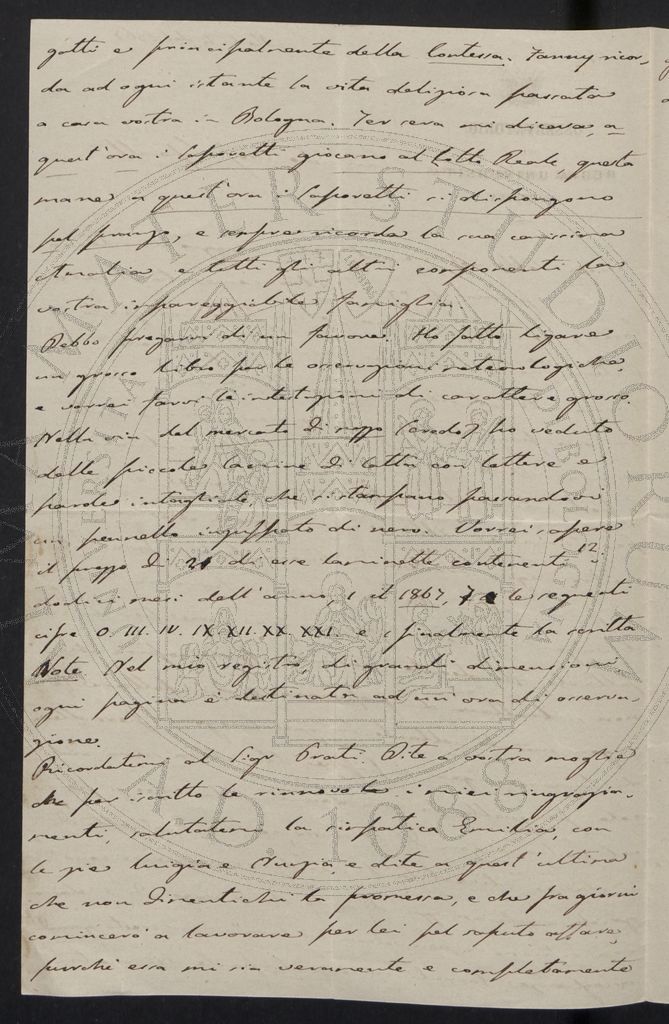 gotti e principalmente della Contessa. Fanny ricor-
da ad ogni istante la vita deliziosa passata
a casa vostra in Bologna. Jer sera mi diceva, a
quest'ora i Saporetti giocano al lotto Reale, questa
mane a quest'ora i Saporetti si dispongono
pel pranzo, e sempre ricorda la sua carissima
Amalia e tutti gli altri componenti la
vostra impareggiabile famiglia.
Debbo pregarvi di un favore. Ho fatto ligare
un grosso libro per le osservazioni meteorologiche
e vorrei farvi le intestazioni di carattere grosso.
Nella via del mercato di mezzo (credo) ho veduto
delle piccole lamine di latta con lettere e
parole intagliate, che si stampano passandovi
un pennello inzuppato di nero. Vorrei sapere
il prezzo di 21 di esse laminette contenenti 12 i
dodici mesi dell'anno, 1 il 1867, 7 le seguenti
cifre O. III. IV. IX XII. XX. XXI. e 1 finalmente la scritta
Note. Nel mio registro, di grandi dimensioni
ogni pagina è destinata ad un'ora di osserva-
zione.
Ricordatemi al Sigr Prati. Dite a vostra moglie
che per iscritto le rinnovo i miei ringrazia-
menti, salutatemi la simpatica Emilia, con
le pie Luigia e Nunzia, e dite a quest'ultima
che non dimentichi la promessa, e che fra giorni
comincerò a lavorare per lei pel saputo affare,
purché essa mi sia veramente e completamente
ALMA MATER STUDIORUM
A.D. 1088